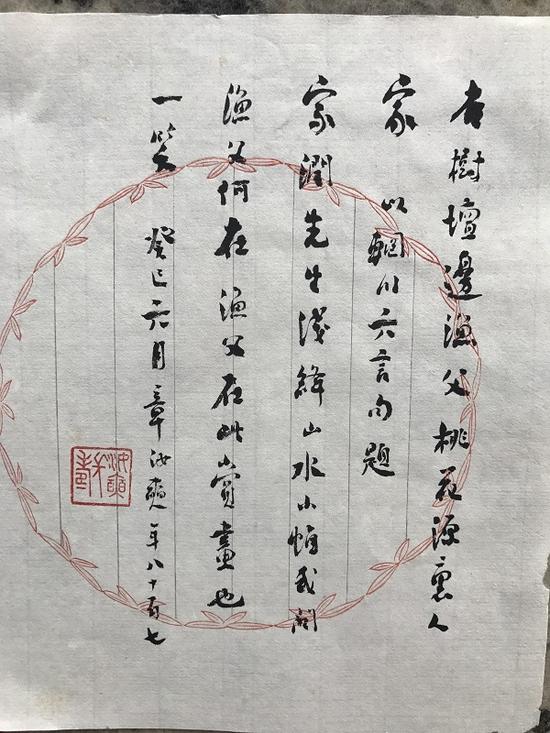 杏樹壇邊漁父桃花源裏人
家 以輞川六言句題
家潤先生淺絳山水小幀或問
漁父何在漁父在此山賞畫也
一笑 癸巳六月章汝奭年八十有七